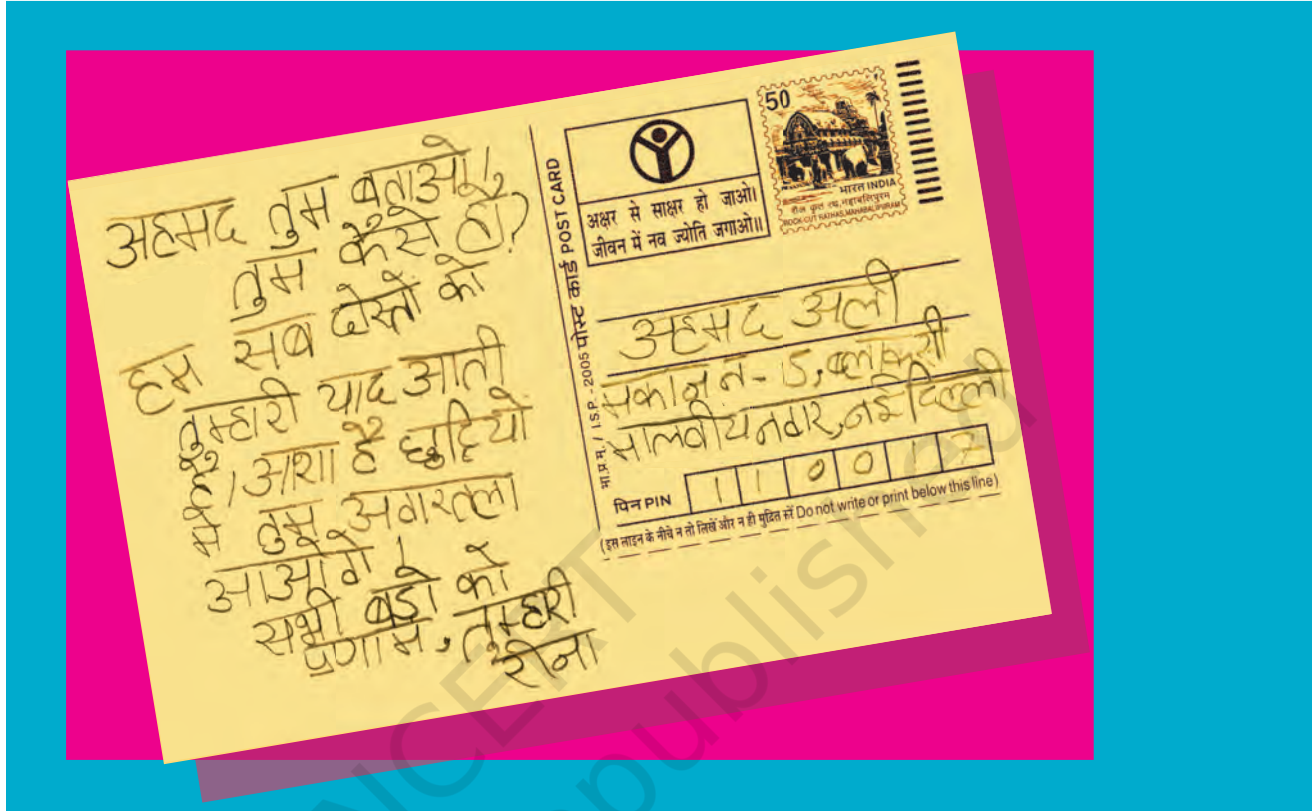 अहमद तुम बताओ,
तुम कैसे हो?
हम सब दोस्तों को
तुम्हारी याद आती
है। आशा है छुट्टियों
में तुम अगरतला
आओगे।
सभी बड़ो को
प्रणाम, तुम्हारी
रीना
भा.प्र.मु. / I.S.P. - 2005 पोस्ट कार्ड POST CARD
अक्षर से साक्षर हो जाओ।
जीवन में नव ज्योति जगाओ॥
50
भारत INDIA
शैल कृत रथ, महाबलिपुरम
ROCK-CUT RATHAS, MAHABALIPURAM
अहमद अली
मकान न - 15, ब्लाक सी
मालवीय नगर, नई दिल्ली
पिन PIN 110017
(इस लाइन के नीचे न तो लिखें और न ही मुद्रित करें Do not write or print below this line)
NCERT
republished